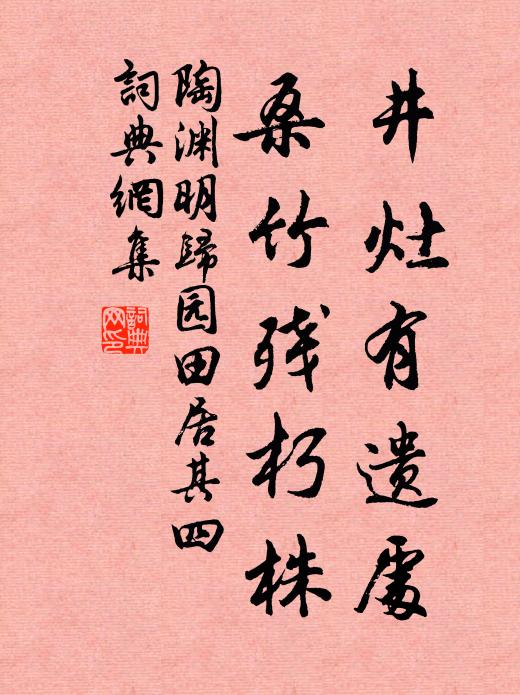 井灶有遗處
桑竹残朽株
陶渊明歸园田居其四
詞典網集
詞典网印